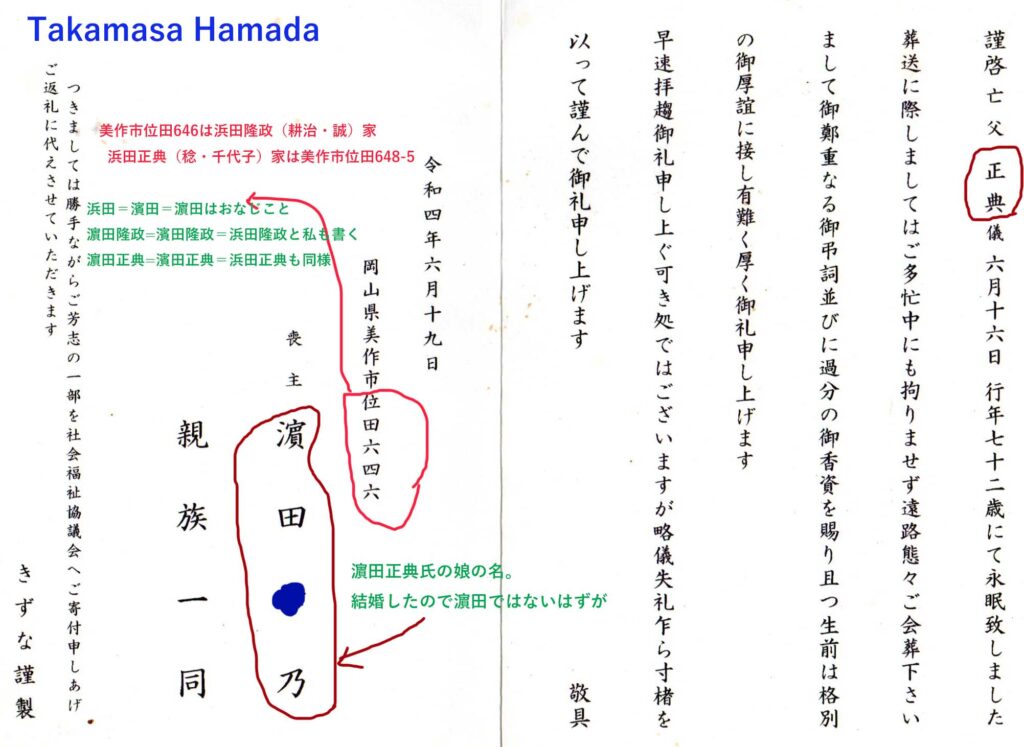 Takamasa Hamada
謹啓亡父正典儀 六月十六日 行年七十二歳にて永眠致しました
葬送に際しましてはご多忙中にも拘りませず遠路態々ご会葬下さい
まして御鄭重なる御弔詞並びに過分の御香資を賜り且つ生前は格別
の御厚誼に接し有難く厚く御礼申し上げます
早速拝趨御礼申し上ぐ可き処ではございますが略儀失礼乍ら寸楮を
以って謹んで御礼申し上げます
敬具
令和四年六月十九日
岡山県美作市位田六四六
喪主
濵田 乃
親族一同
つきましては勝手ながらご芳志の一部を社会福祉協議会へご寄付申しあげ
ご返礼に代えさせていただきます
きずな謹製
美作市位田646は浜田隆政（耕治・誠）家
浜田正典（稔・千代子）家は美作市位田648-5
浜田＝濱田＝濵田はおなじこと
濵田隆政=濱田隆政＝浜田隆政と私も書く
濵田正典=濱田正典＝浜田正典も同様
濵田正典氏の娘の名。
結婚したので濵田ではないはずが